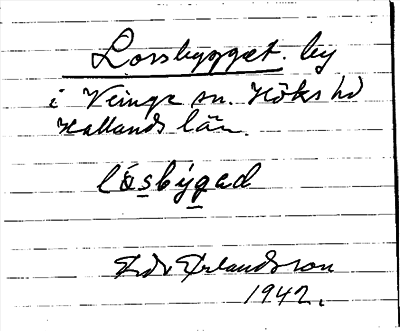 Lossbygget. by
i Veinge sn. Höks hd
Hallands län.
låsbýgad
Erlandsson
1942.